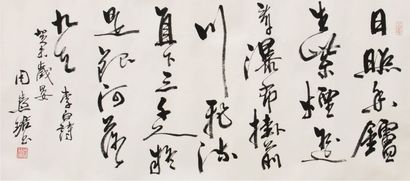 日照香鑪
生紫煙遥
看瀑布掛前
川飛流
直下三千尺疑
是銀河落
九天
李白詩
癸未歲晏
周